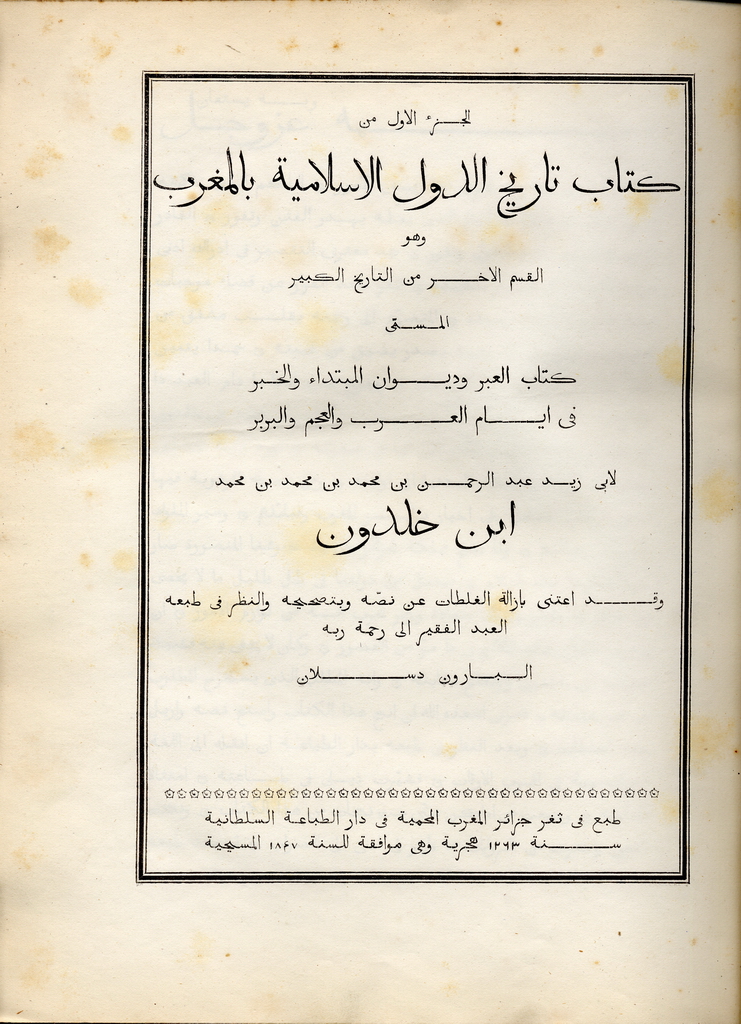 الجزء الاول من
كتاب تاريخ الدول الاسلامية بالمغرب
وهو
القسم الاخر من التاريخ الكبير
المسمّى
كتاب العبر وديوان المبتداء والخبر
فى ايام العرب والعجم والبربر
لابى زيد عبد الرحمن بن محمد بن محمد بن محمد
ابن خلدون
وقد اعتنى بازالة الغلطات عن نصّه وبتصحيحه والنظر فى طبعه
العبد الفقير الى رحمة ربه
البارون دسلان
طبع فى ثغر جزائر المغرب المحمية فى دار الطباعة السلطانية
سنة ١٢٦٣ هجرية وهى موافقة للسنة ١٨٤٧ المسيحية